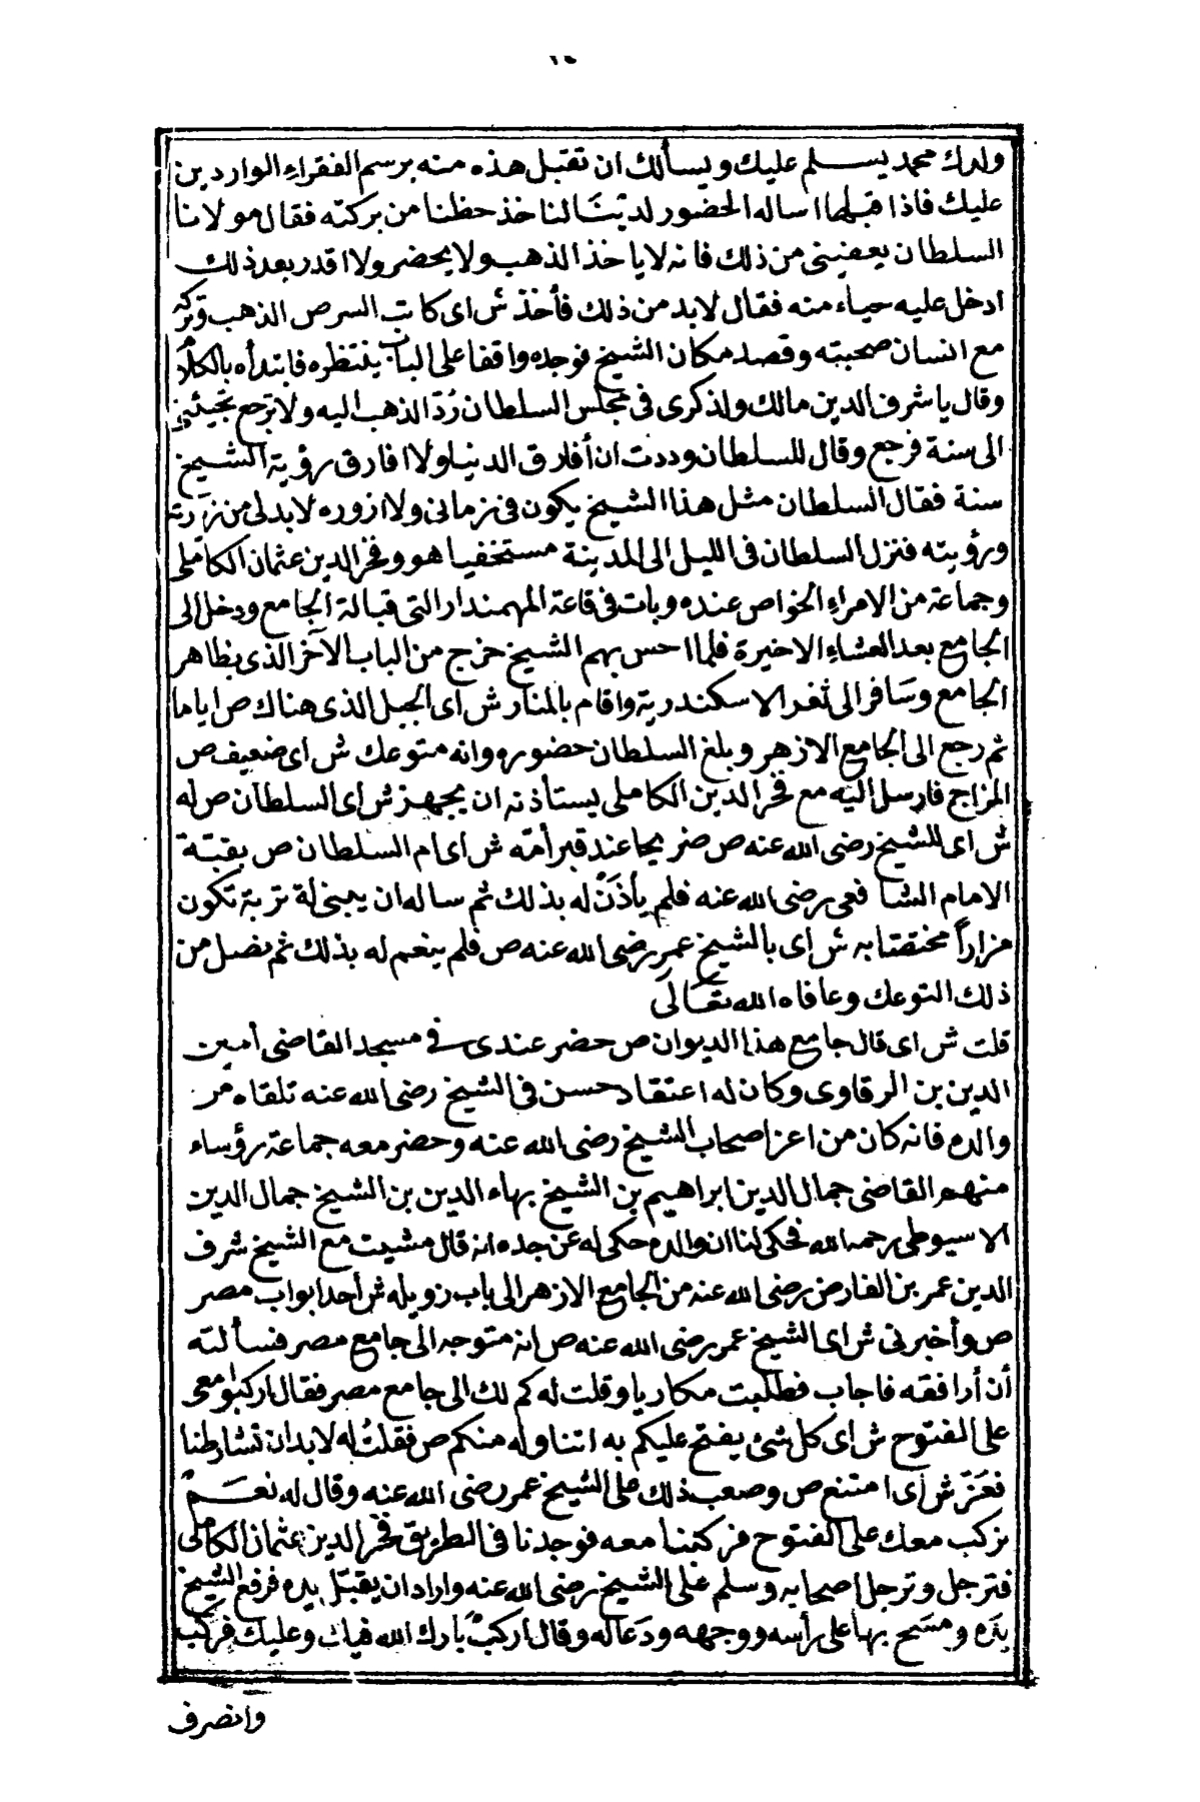 ١٥
ولدك محمد يسلم عليك ويسألك ان تقبل هذه منه برسم الفقراء الواردين
عليك فاذا قبلها اساله الحضور لدينا لنا خذ حظنا من بركته فقال مولانا
السلطان يعفيني من ذلك فانه لا ياخذ الذهب ولا يحضر ولا اقدر بعد ذلك
ادخل عليه حياء منه فقال لا بد من ذلك فأخذ ش اى كاتب السر ص الذهب وتركه
مع انسان صحبته وقصد مكان الشيخ فوجده واقفا على الباب ينتظره فابتدأه بالكلام
وقال يا شرف الدين مالك ولذكرى فى مجلس السلطان رُدّ الذهب اليه ولا ترجع تجيئني
الى سنة فرجع وقال للسلطان وددت ان أفارق الدنيا ولا افارق رؤية الشيخ
سنة فقال السلطان مثل هذا الشيخ يكون فى زمانى ولا ازوره لا بد لى من زيارته
ورؤيته فنزل السلطان فى الليل الى المدينة مستخفيا هو وفخر الدين عثمان الكاملى
وجماعة من الامراء الخواص عنده وبات فى قاعة المهمندار التى قبالة الجامع ودخل الى
الجامع بعد العشاء الاخيرة فلما احس بهم الشيخ خرج من الباب الآخر الذى بظاهر
الجامع وسافر الى ثغر الاسكندرية واقام بالمنار ش اى الجبل الذى هناك ص اياما
ثم رجع الى الجامع الازهر وبلغ السلطان حضوره وانه متوعك ش اى ضعيف ص
المزاج فارسل اليه مع فخر الدين الكاملى يستأذنه ان يجهز ش اى السلطان ص له
ش اى للشيخ رضى الله عنه ص ضريحا عند قبر أمّه ش اى ام السلطان ص بقبّة
الامام الشافعى رضى الله عنه فلم يأذَن له بذلك ثم ساله ان يبنى له تربة تكون
مزاراً مختصا به ش اى بالشيخ عمر رضى الله عنه ص فلم ينعم له بذلك ثم نصل من
ذلك التوعك وعافاه الله تعَالَى
قلت ش اى قال جامع هذا الديوان ص حضر عندى فى مسجد القاضى أمين
الدين بن الرقاوى وكان له اعتقاد حسن فى الشيخ رضى الله عنه تلقاه من
والده فانه كان من اعز اصحاب الشيخ رضى الله عنه وحضر معه جماعة رؤساء
منهم القاضى جمال الدين ابراهيم بن الشيخ بهاء الدين بن الشيخ جمال الدين
الاسيوطى رحمه الله فحكى لنا ان والده حكى له عن جده انه قال مشيت مع الشيخ شرف
الدين عمر بن الفارض رضى الله عنه من الجامع الازهر الى باب زويله ش أحد ابواب مصر
ص وأخبرنى ش اى الشيخ عمر رضى الله عنه ص انه متوجه الى جامع مصر فسألته
أن أرافقه فاجاب فطلبت مكاريا وقلت له كم لك الى جامع مصر فقال اركبوا معى
على الفتوح ش اى كل شئ يفتح عليكم به اتناوله منكم ص فقلتُ له لا بد ان تشارطنا
فعَزّ ش اى امتنع ص وصعب ذلك على الشيخ عمر رضى الله عنه وقال له نعَم
نركب معك على الفتوح فركبنا معه فوجدنا فى الطريق فخر الدين عثمان الكاملى
فترجل وترجل اصحابه وسلم على الشيخ رضى الله عنه واراد ان يقبّل يده فرفع الشيخ
يدَه ومسَح بها على رأسه ووجهه ودعَا له وقال اركبْ بارك الله فيك وعليك فركب
وانصرف